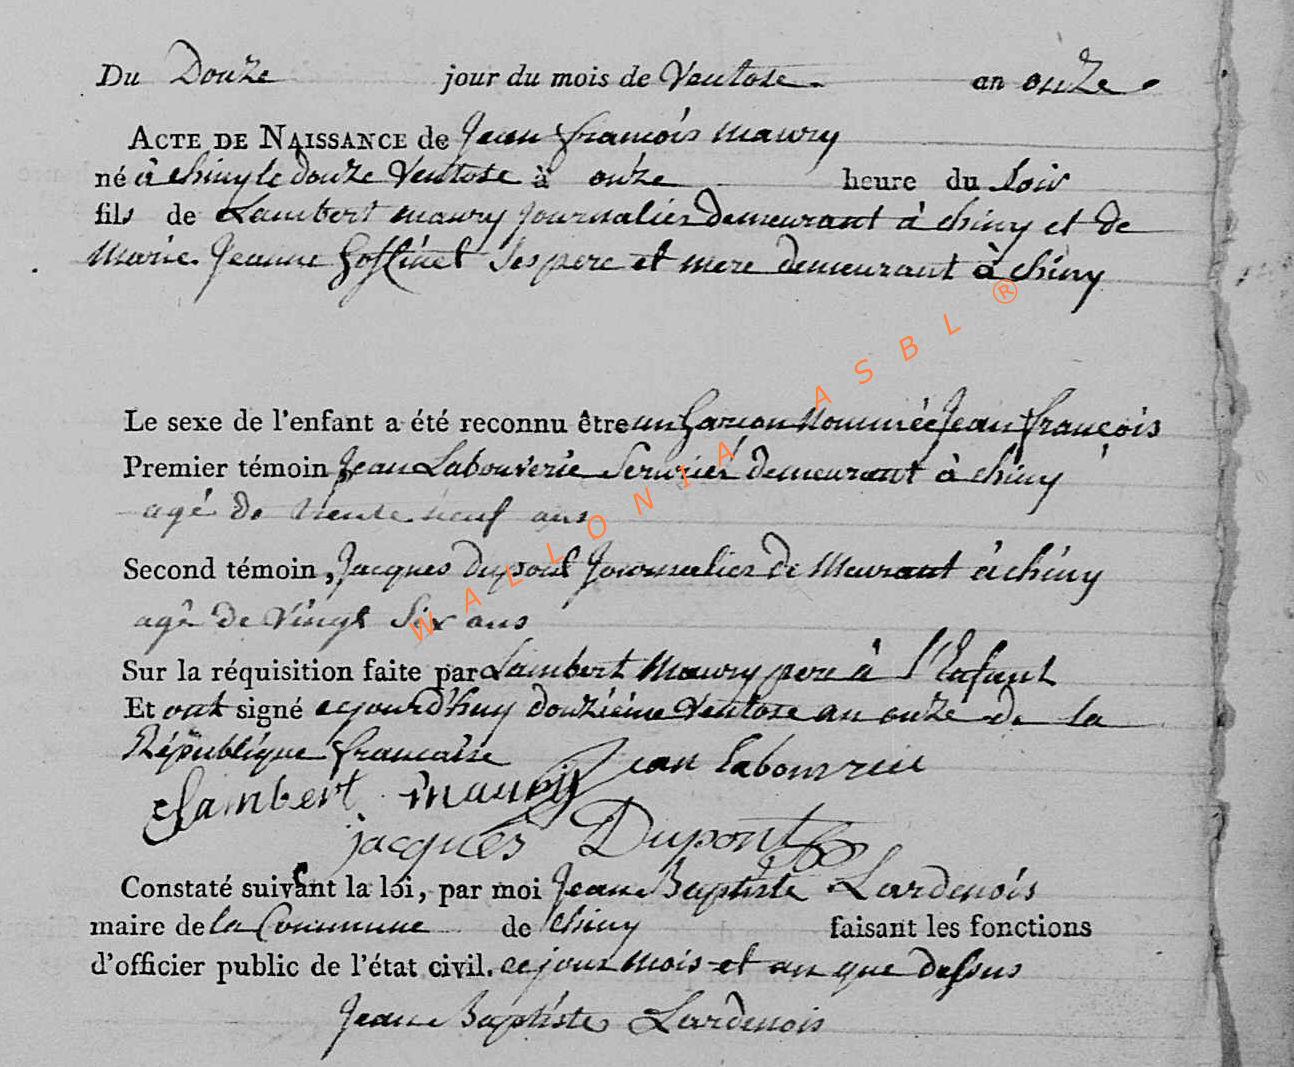 Du Douze jour du mois de Ventose. an onze.
ACTE DE NAISSANCE de Jean françois maury
né à chiny le douze Ventose à onze heure du soir
fils de Lambert maury journalier demeurant à chiny et de
Marie Jeanne Goffinet Ses pere et mere demeurant à chiny
Le sexe de l'enfant a été reconnu être un Garcon nommée Jean françois
Premier témoin Jean Labouverie Serurier demeurant à chiny
agé de trente neuf ans
Second témoin, Jacques dupont Journalier de Meurant à chiny
agé de vingt six ans
Sur la réquisition faite par Lambert maury pere à l'Enfant
Et ont signé cejourd'huy douzième Ventose an onze de la
République francaise
jean labouverie
Lambert maury
jacques Dupont
Constaté suivant la loi, par moi Jean Baptiste Lardenois
maire de la Commune de chiny faisant les fonctions
d'officier public de l'état civil. ce jour mois et an que dessus
Jean Baptiste Lardenois
WALLONIA ASBL ®